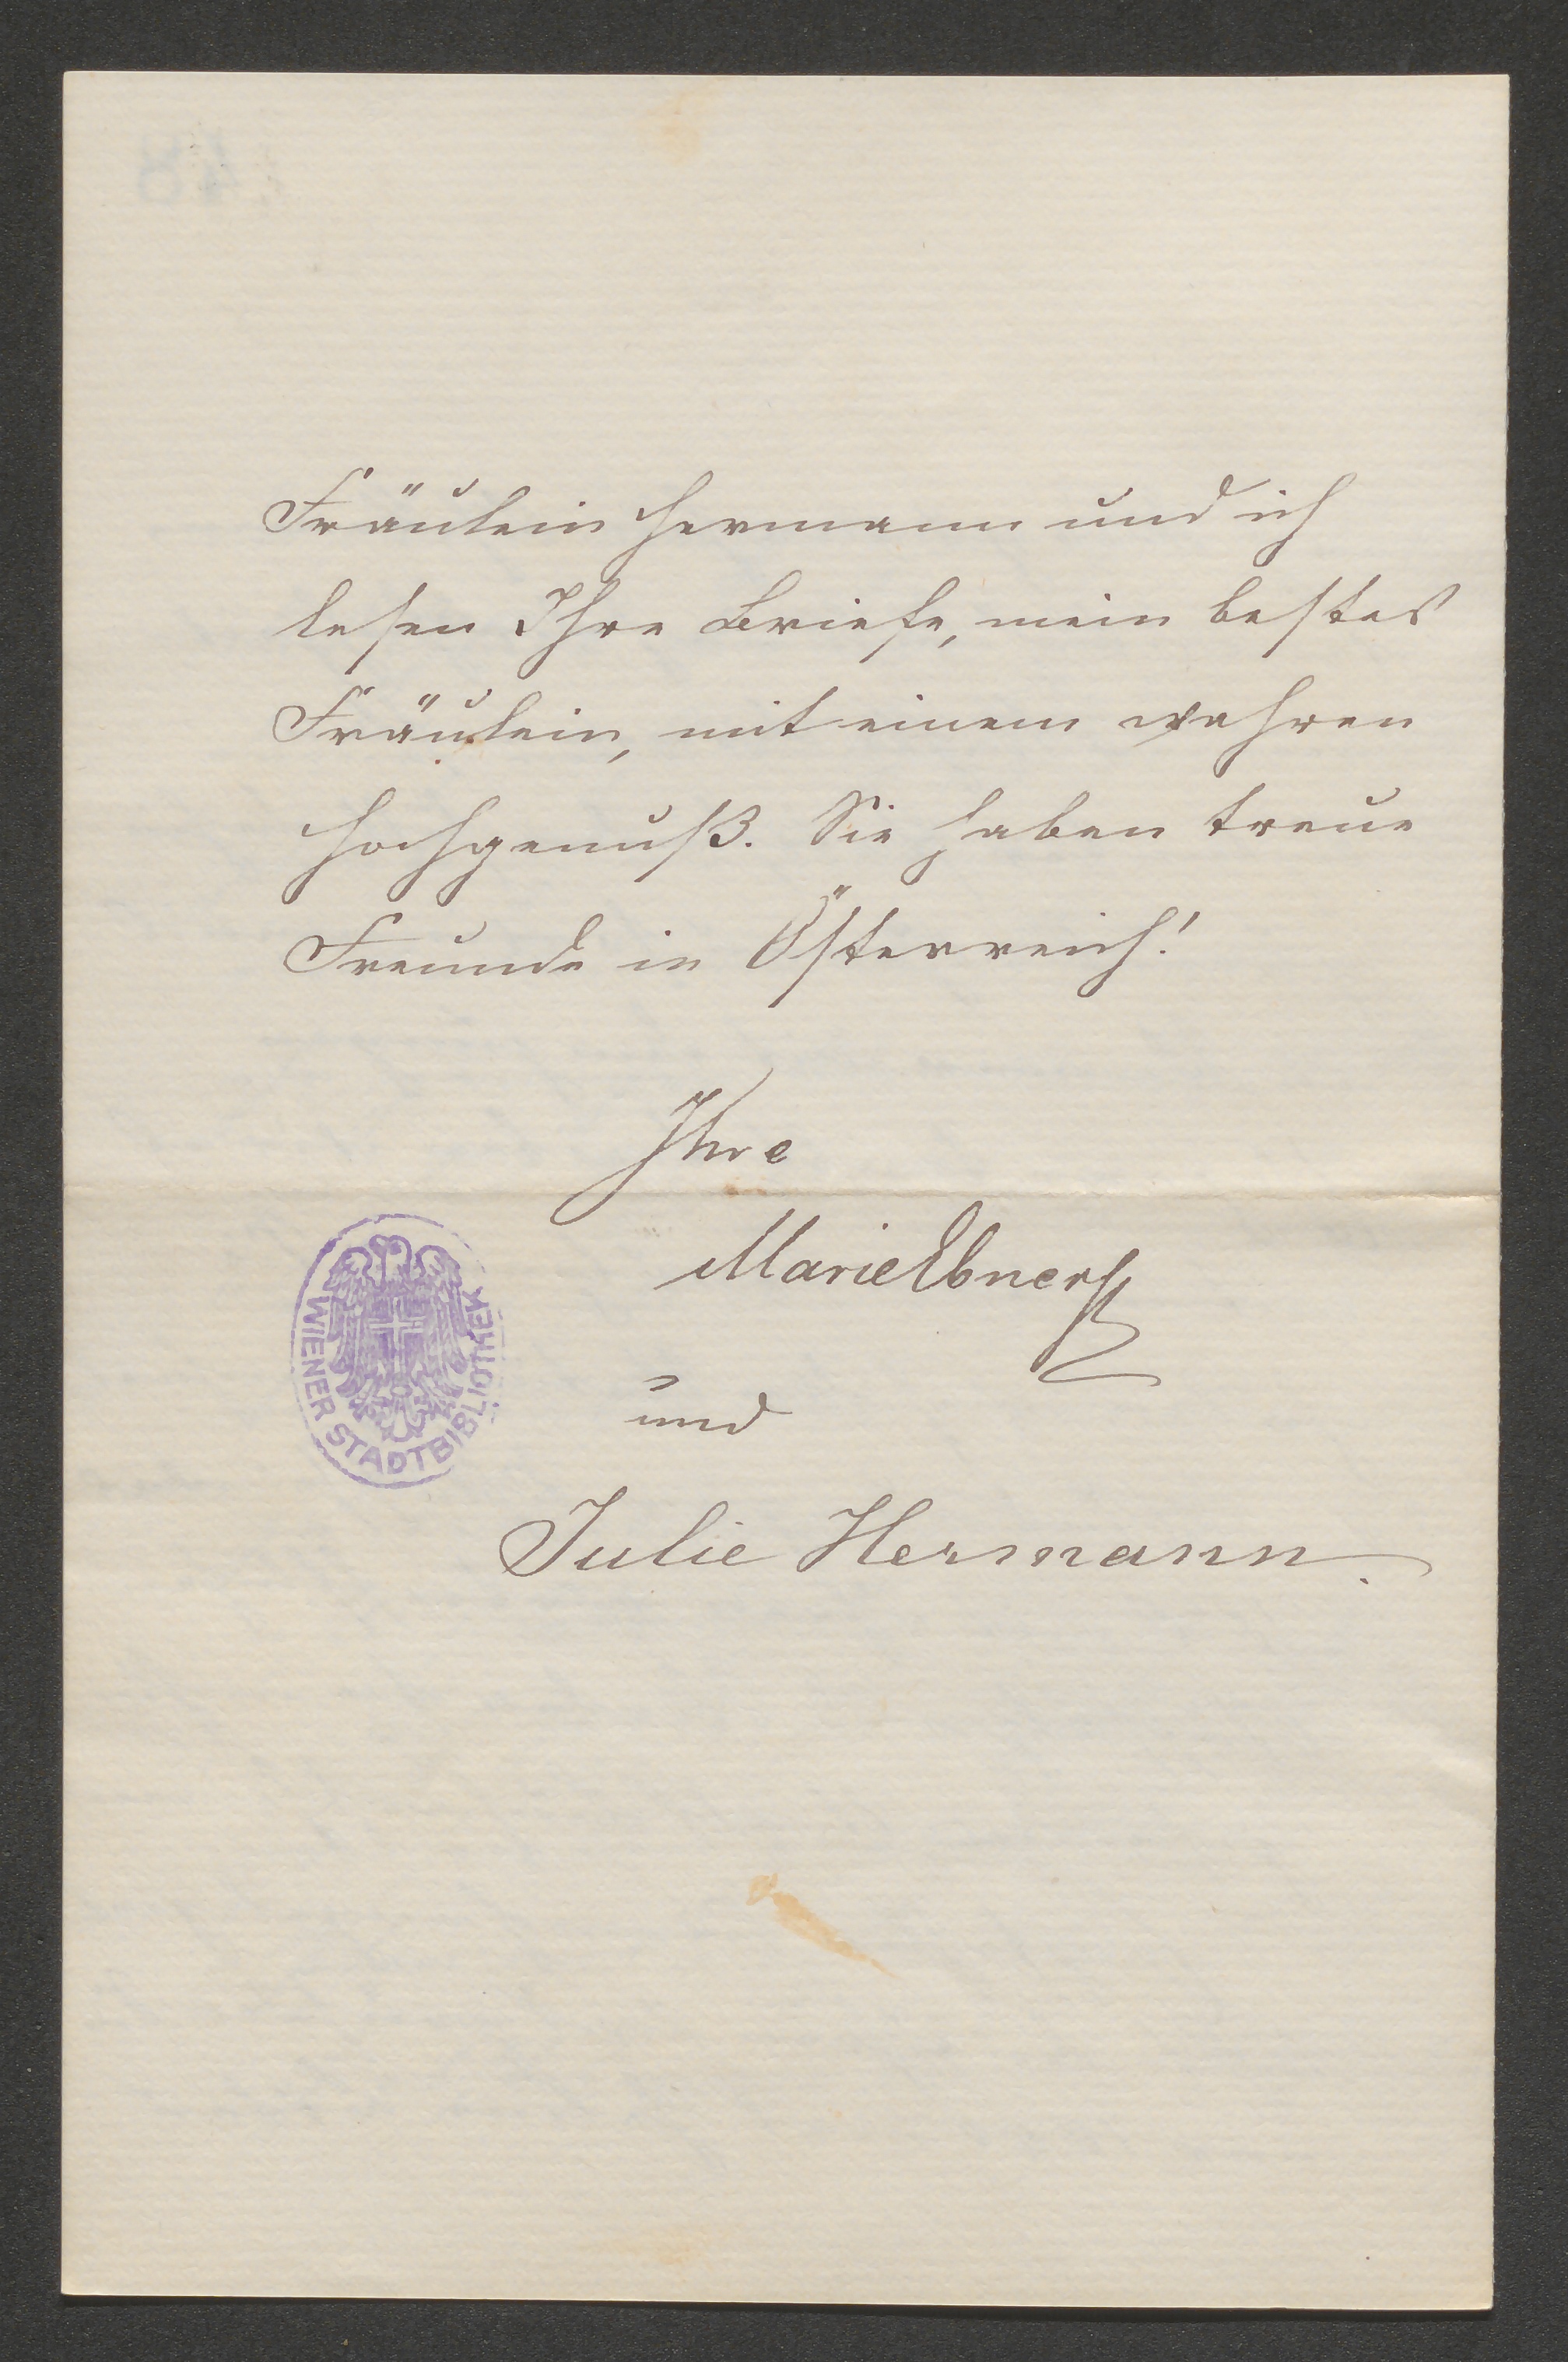 Fräulein Hermann und ich
lesen Ihre Briefe, mein bestes
Fräulein, mit einem wahren
Hochgenuß. Sie haben treue
Freunde in Österreich!
Ihre
Marie Ebner
WIENER STADTBIBLIOTHEK
und
Julie Hermann.